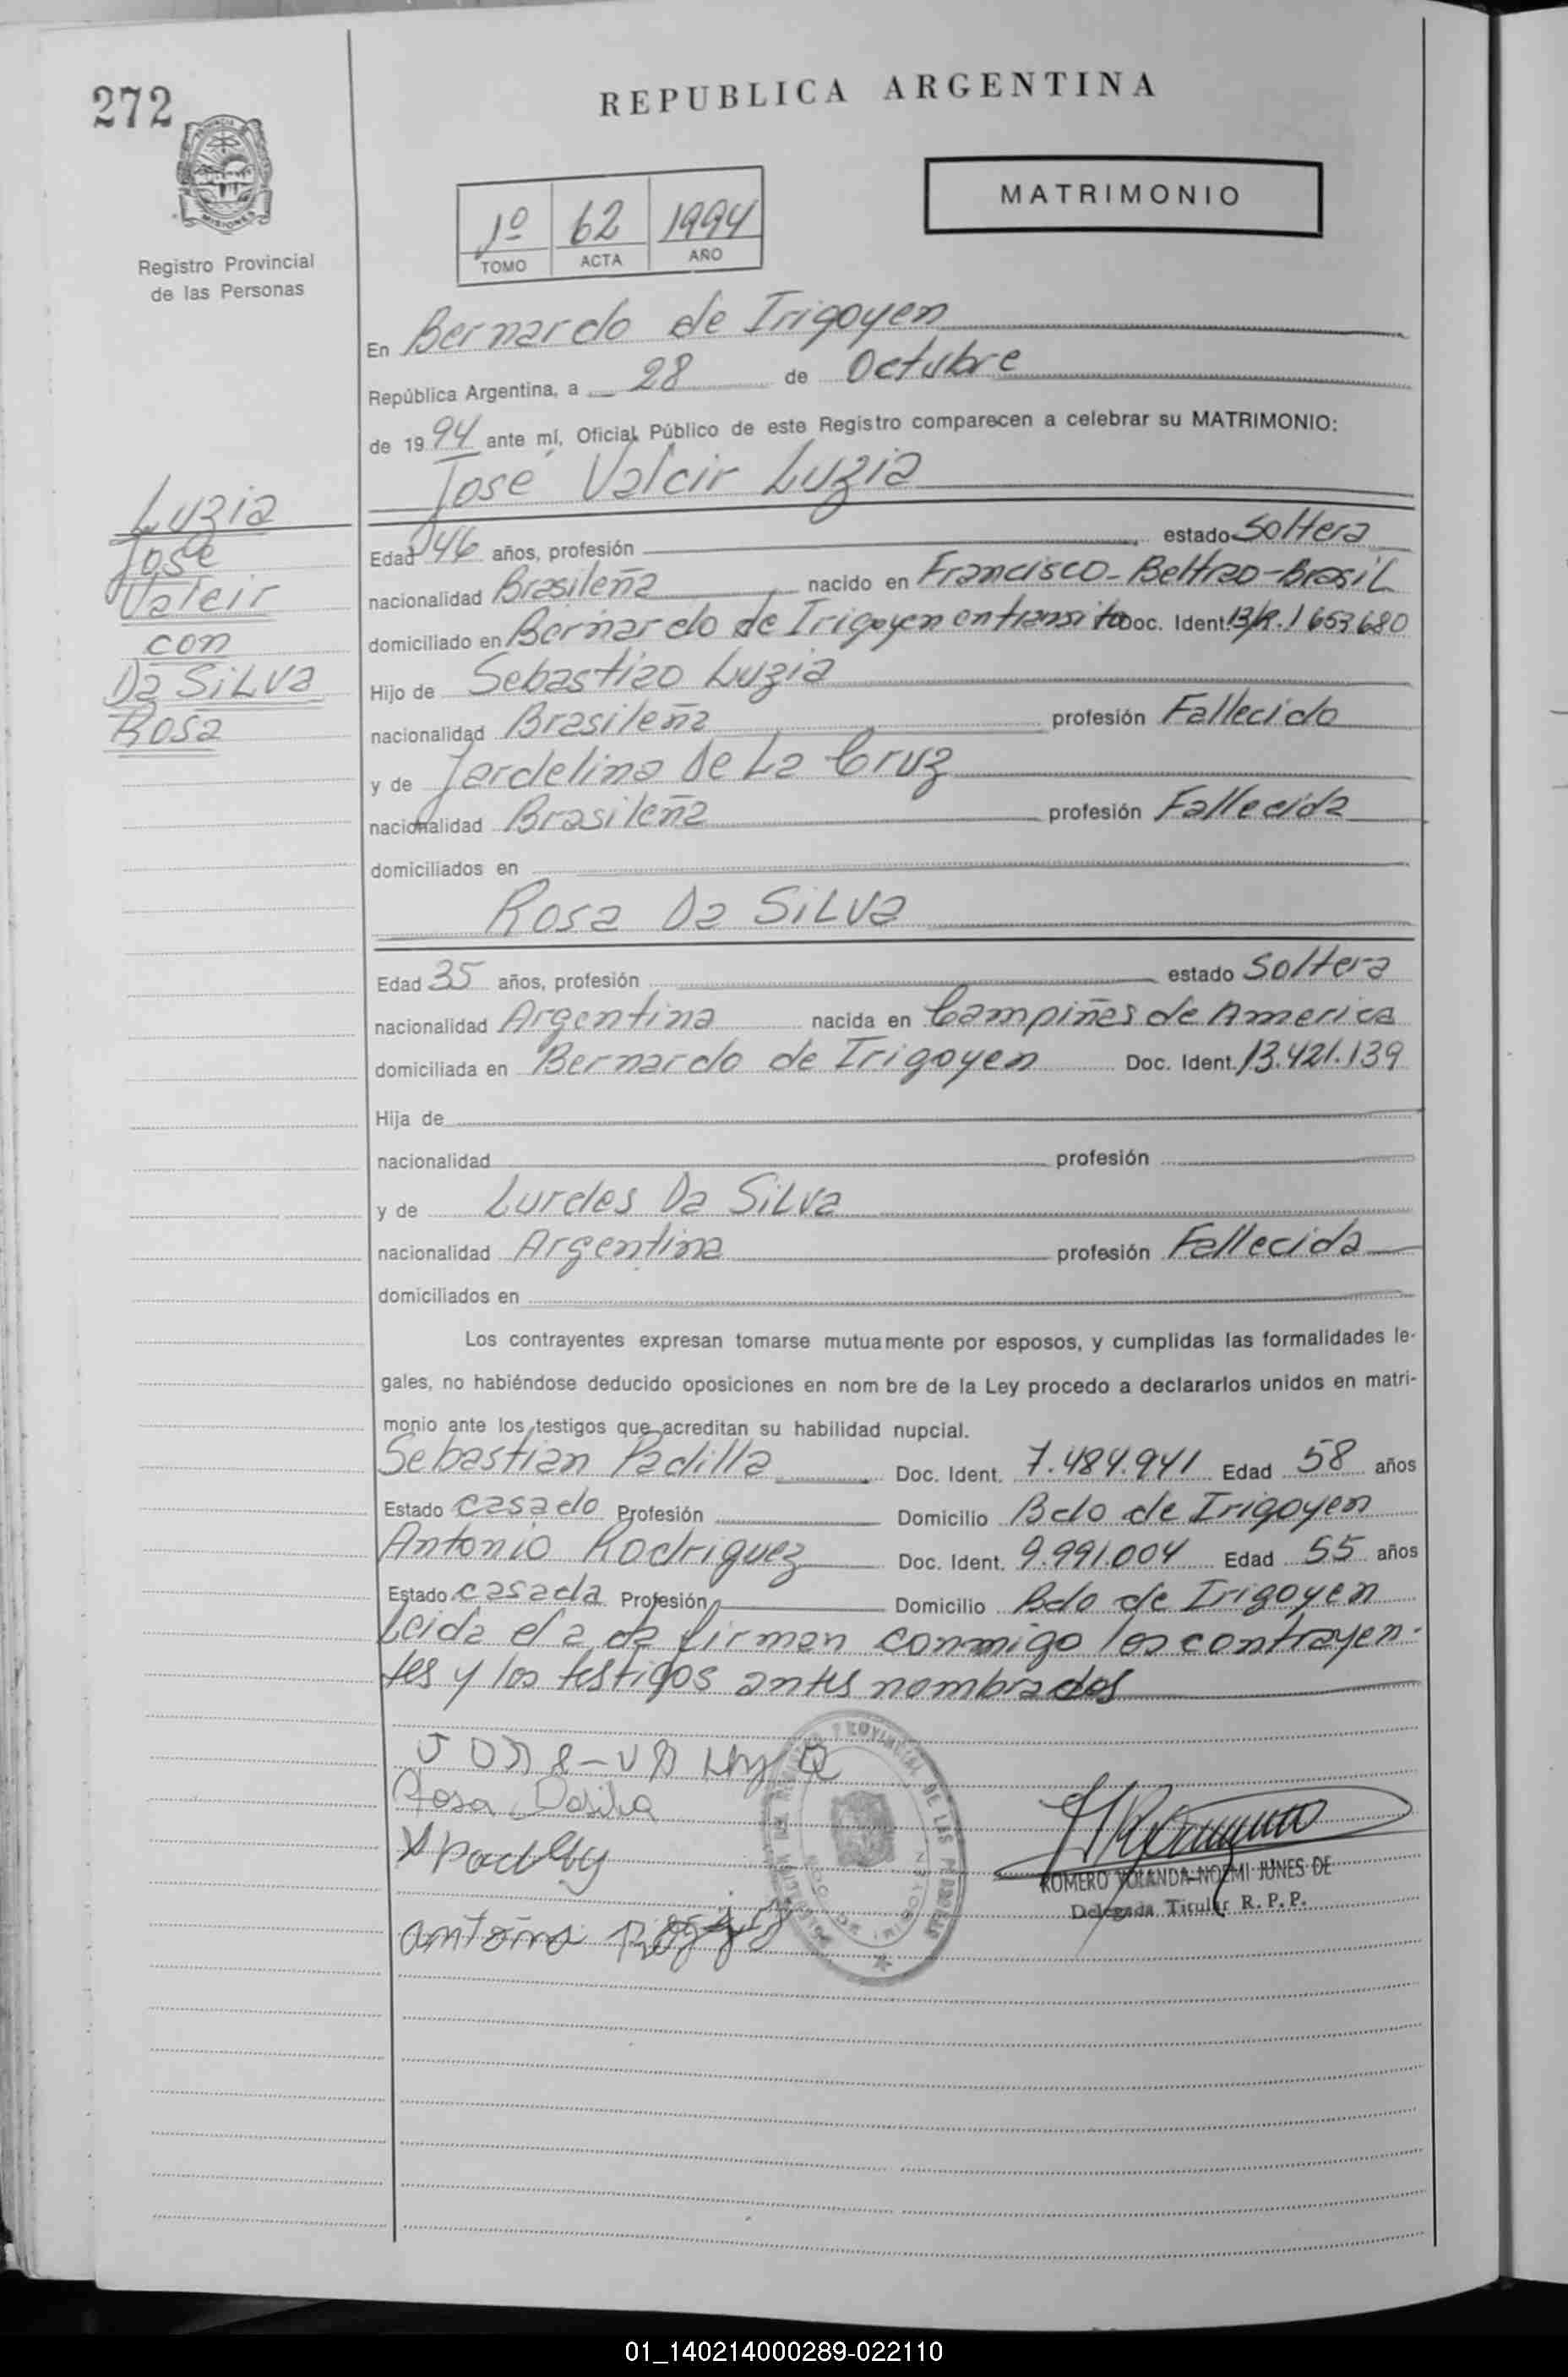 272
REPUBLICA ARGENTINA
MATRIMONIO
1º 62 1994
TOMO ACTA AÑO
PROVINCIA DE
MISIONES
Registro Provincial
de las Personas
En Bernardo de Irigoyen
República Argentina, a 28 de Octubre
de 1994 ante mí, Oficial Público de este Registro comparecen a celebrar su MATRIMONIO:
José Valcir Luzia
Luzia
José
Valcir
con
Da SiLva
Rosa
Edad 46 años, profesión estado Soltera
nacionalidad Brasileña nacido en Francisco-Beltrao-BrasiL
domiciliado en Bernardo de Irigoyen en transito Doc. Ident. 1653680
Hijo de Sebastiao Luzia
nacionalidad Brasileña profesión Fallecido
y de Jardelina De La Cruz
nacionalidad Brasileña profesión Fallecida
domiciliados en
Rosa Da SiLva
Edad 35 años, profesión estado Soltera
nacionalidad Argentina nacida en Campiñas de America
domiciliada en Bernardo de Irigoyen Doc. Ident. 13.421.139
Hija de
nacionalidad profesión
y de Lurdes Da SiLva
nacionalidad Argentina profesión Fallecida
domiciliados en
Los contrayentes expresan tomarse mutuamente por esposos, y cumplidas las formalidades le-
gales, no habiéndose deducido oposiciones en nom bre de la Ley procedo a declararlos unidos en matri-
monio ante los testigos que acreditan su habilidad nupcial.
Sebastian Padilla Doc. Ident. 7.484.941 Edad 58 años
Estado casado Profesión Domicilio Bdo de Irigoyen
Antonio Rodriguez Doc. Ident. 9.991.004 Edad 55 años
Estado casada Profesión Domicilio Bdo de Irigoyen
Leida el acta firman conmigo los contrayen-
tes y los testigos antes nombrados
Rosa Dasilva
ROMERO YOLANDA NOEMI JUNES DE
Delegada Titular R. P. P.
01_140214000289-022110